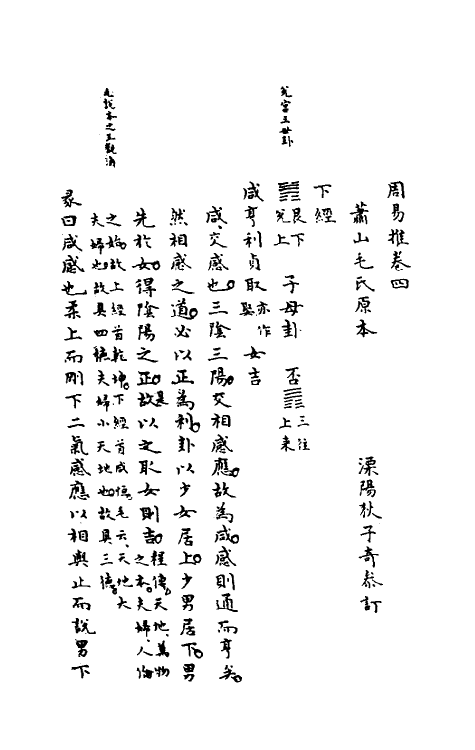 周易推卷四
蕭山毛氏原本　溧陽狄子奇叅訂
下經
兌宮三世卦
䷞艮下兌上　子母卦　否䷋三往上来
咸亨利貞取亦作娶女吉
咸交感也三陰三陽交相感應故為咸感則通而亨矣
然相感之道必以正為利卦以少女居上少男居下男
先於女得陰陽之正故以之取女則吉程傳天地萬物之本夫婦人倫
之始故上經首乾坤下經首咸恒毛云天地大
夫婦也故具四德夫婦小天地也故具三德
彖曰咸感也柔上而剛下二氣感應以相與止而說男下